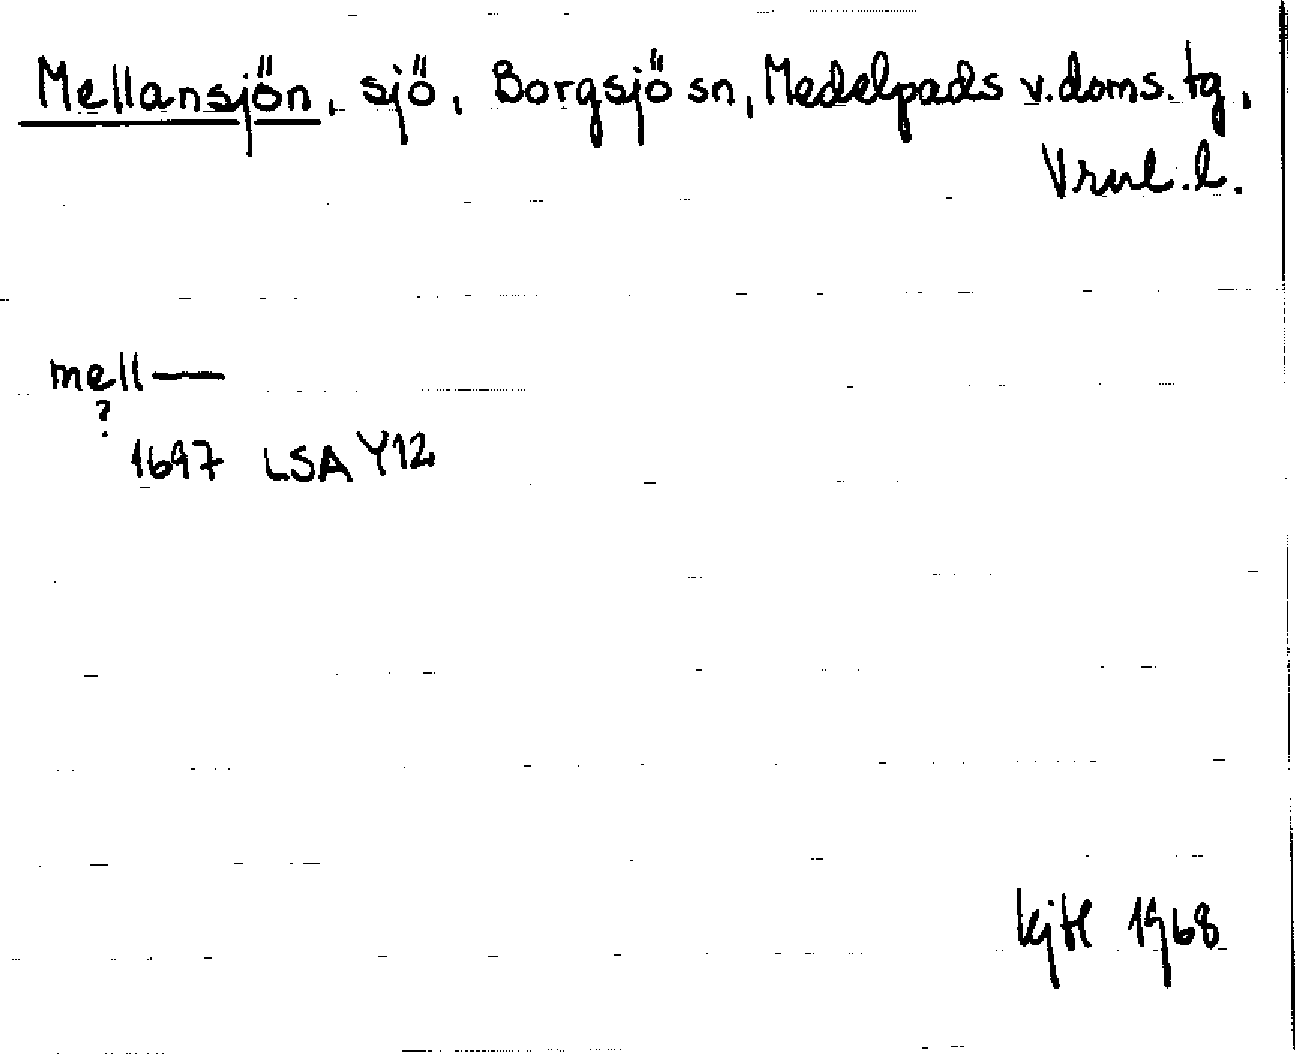 Mellansjön, sjö, Borgsjö sn, Medelpads v. doms. tg,
Vrnl. l.
mell—
?
1697 LSA Y12
kjtl 1968